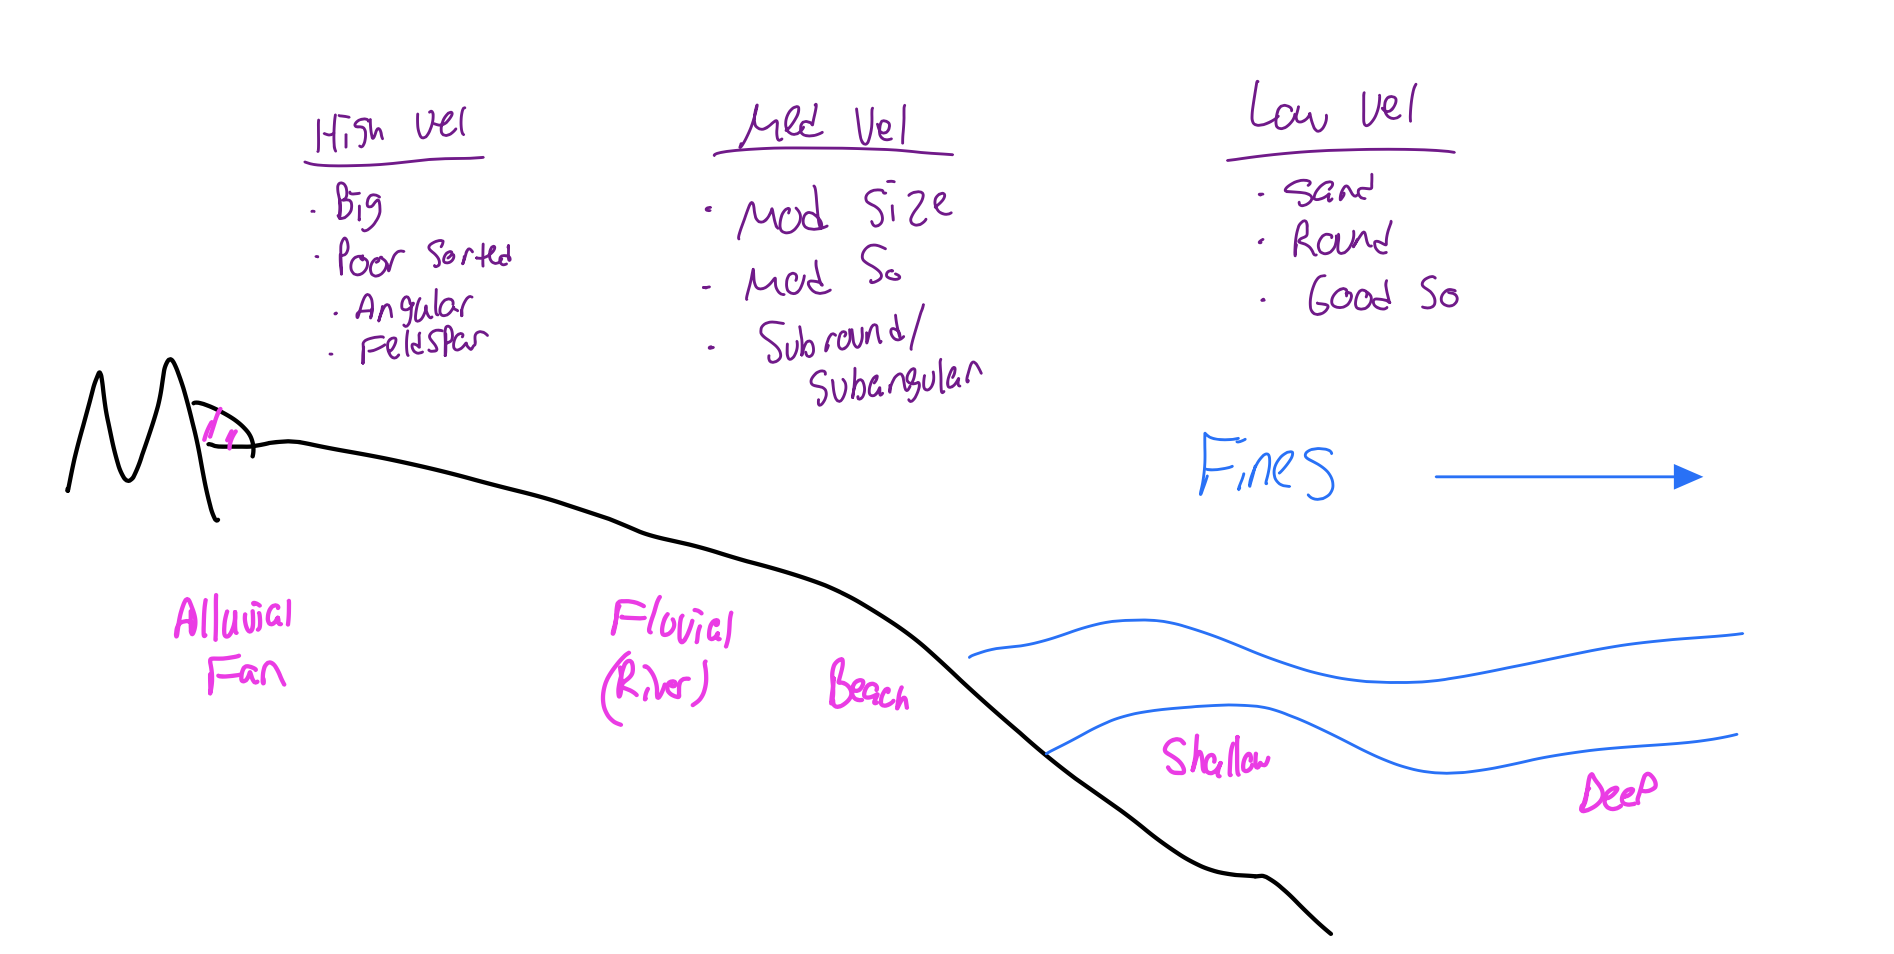 High Vel
· Big
· Poor Sorted
· Angular
· Feldspar
Med Vel
· Mod Size
· Mod So
· Subround/
Subangular
Low Vel
· Sand
· Round
· Good So
Fines
Alluvial
Fan
Fluvial
(River)
Beach
Shallow
Deep